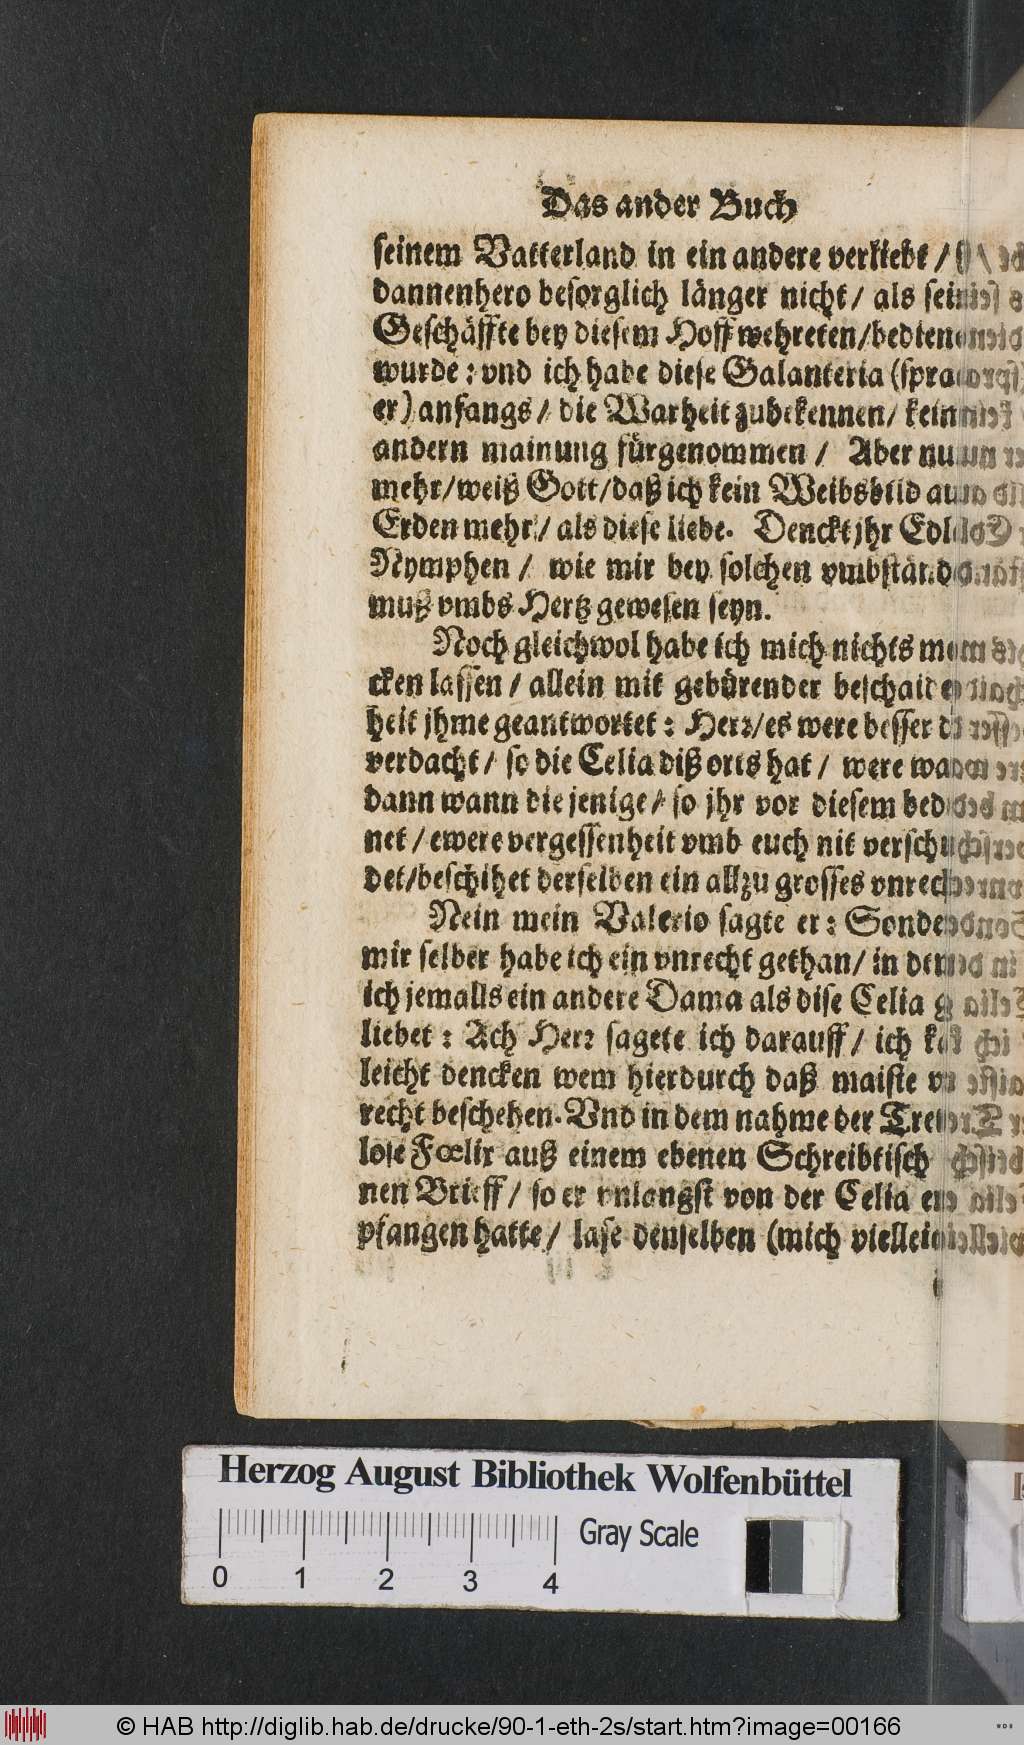 Das ander Buch
seinem Vatterland in ein andere verliebt /
dannenhero besorglich länger nicht / als sei
Geschäffte bey diesem Hoff wehreten / bedien
wurde: vnd ich habe diese Galanteria (spra
er) anfangs / die Warheit zubekennen / kein
andern mainung fürgenommen / Aber nu
mehr / weiß Gott / daß ich kein Weibsbild au
Erden mehr / als diese liebe. Denckt jhr Edl
Nymphen / wie mir bey solchen vmbständ
muß vmbs Hertz gewesen seyn.
Noch gleichwol habe ich mich nichts m
cken lassen / allein mit gebürender beschaid
heit jhme geantwortet: Herr / es were besser d
verdacht / so die Celia diß orts hat / were wa
dann wann die jenige / so jhr vor diesem bed
net / ewere vergessenheit vmb euch nit verschu
det / beschihet derselben ein allzu grosses vnrech
Nein mein Valerio sagte er: Sonder
mir selber habe ich ein vnrecht gethan / in de
ich jemalls ein andere Dama als dise Celia g
liebet: Ach Herr sagete ich darauff / ich ka
leicht dencken wem hierdurch daß maiste vn
recht beschehen. Vnd in dem nahme der Trew
lose Fœlix auß einem ebenen Schreibtisch
nen Brieff / so er vnlangst von der Celia em
pfangen hatte / lase denselben (mich viellei
Herzog August Bibliothek Wolfenbüttel
0 1 2 3 4 Gray Scale
© HAB http://diglib.hab.de/drucke/90-1-eth-2s/start.htm?image=00166